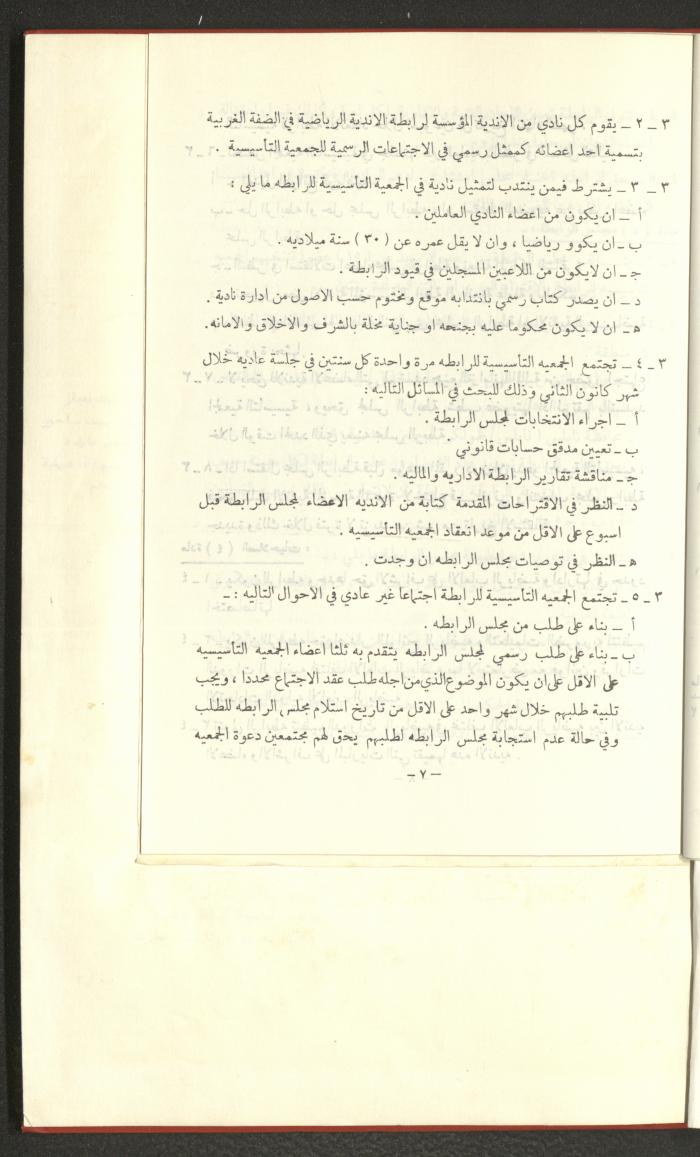 ٣ ـ ٢ ـ يقوم كل نادي من الاندية المؤسسة لرابطة الاندية الرياضية في الضفة الغربية
بتسمية احد اعضائه كممثل رسمي في الاجتماعات الرسمية للجمعية التأسيسية .
٣ ـ ٣ ـ يشترط فيمن ينتدب لتمثيل نادية في الجمعية التأسيسية للرابطه ما يلي :
أ ـ ان يكون من اعضاء النادي العاملين .
ب ـ ان يكوو رياضيا ، وان لا يقل عمره عن ( ٣٠ ) سنة ميلاديه .
جـ ـ ان لايكون من اللاعبين المسجلين في قيود الرابطة .
د ـ ان يصدر كتاب رسمي بانتدابه موقع ومختوم حسب الاصول من ادارة نادية .
هـ ـ ان لا يكون محكوما عليه بجنحه او جناية مخلة بالشرف والاخلاق والامانه.
٣ ـ ٤ ـ تجتمع الجمعيه التأسيسية للرابطه مرة واحدة كل سنتين في جلسة عاديه خلال
شهر كانون الثاني وذلك للبحث في المسائل التاليه :
أ ـ اجراء الانتخابات لمجلس الرابطة .
ب ـ تعيين مدقق حسابات قانوني
جـ ـ مناقشة تقارير الرابطة الاداريه والماليه .
د ـ النظر في الاقتراحات المقدمة كتابة من الانديه الاعضاء لمجلس الرابطة قبل
اسبوع على الاقل من موعد انعقاد الجمعيه التأسيسيه .
هـ ـ النظر في توصيات مجلس الرابطه ان وجدت .
٣ ـ ٥ ـ تجتمع الجمعيه التأسيسية للرابطة اجتماعا غير عادي في الاحوال التاليه : ـ
أ ـ بناء على طلب من مجلس الرابطه .
ب ـ بناء على طلب رسمي لمجلس الرابطه يتقدم به ثلثا اعضاء الجمعيه التأسيسيه
على الاقل على ان يكون الموضوع الذي من اجله طلب عقد الاجتماع محددا ، ويجب
تلبية طلبهم خلال شهر واحد على الاقل من تاريخ استلام مجلس الرابطه للطلب
وفي حالة عدم استجابة مجلس الرابطه لطلبهم يحق لهم مجتمعين دعوة الجمعيه
ـ ٧ ـ